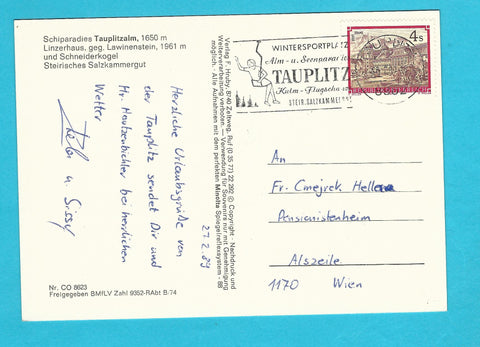 Schiparadies Tauplitzalm, 1650 m
Linzerhaus, geg. Lawinenstein, 1961 m
und Schneiderkogel
Steirisches Salzkammergut
27. 2. 89
Herzliche Urlaubsgrüße von
der Tauplitz sendet Dir und
Hr. Hautzenbichler bei herrlichen
Wetter
u. Sissy
Nr. CO 8623
Freigegeben BMfLV Zahl 9352-RAbt B/74
Verlag F. Hruby, 8740 Zeltweg, Ruf (0 35 77) 22 282 © Copyright - Nachdruck und
Weiterverarbeitung verboten. — Verwendung für Souvenirs nur mit Genehmigung
gestattet - Alle Aufnahmen mit dem perfekten Minolta Spiegelreflexsystem - 88
WINTERSPORTPLATZ
Alm - u. Seenparadies
TAUPLITZ
STEIR. SALZKAMMERGUT
4 S
REPUBLIK ÖSTERREICH
An
Fr. Cmejrek Hellena
Pensionistenheim
Alszeile
1170 Wien